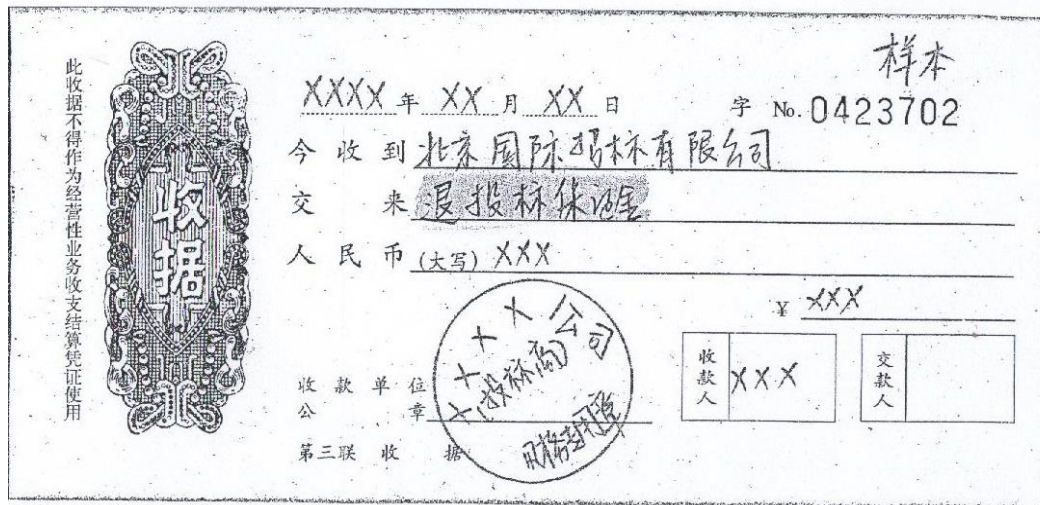 此收据不得作为经营性业务收支结算凭证使用
收据
样本
XXXX 年 XX 月 XX 日
字 No. 0423702
今收到 北京国际招标有限公司
交来 退投标保证金
人民币 (大写) XXX
¥ XXX
收款单位
公章
XXXX公司
(投标商)
财务专用章
收款人 XXX
交款人
第三联 收据